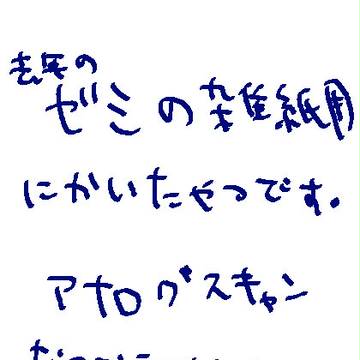 去年の
ゼミの雑紙用
にかいたやつです。
アナログスキャン